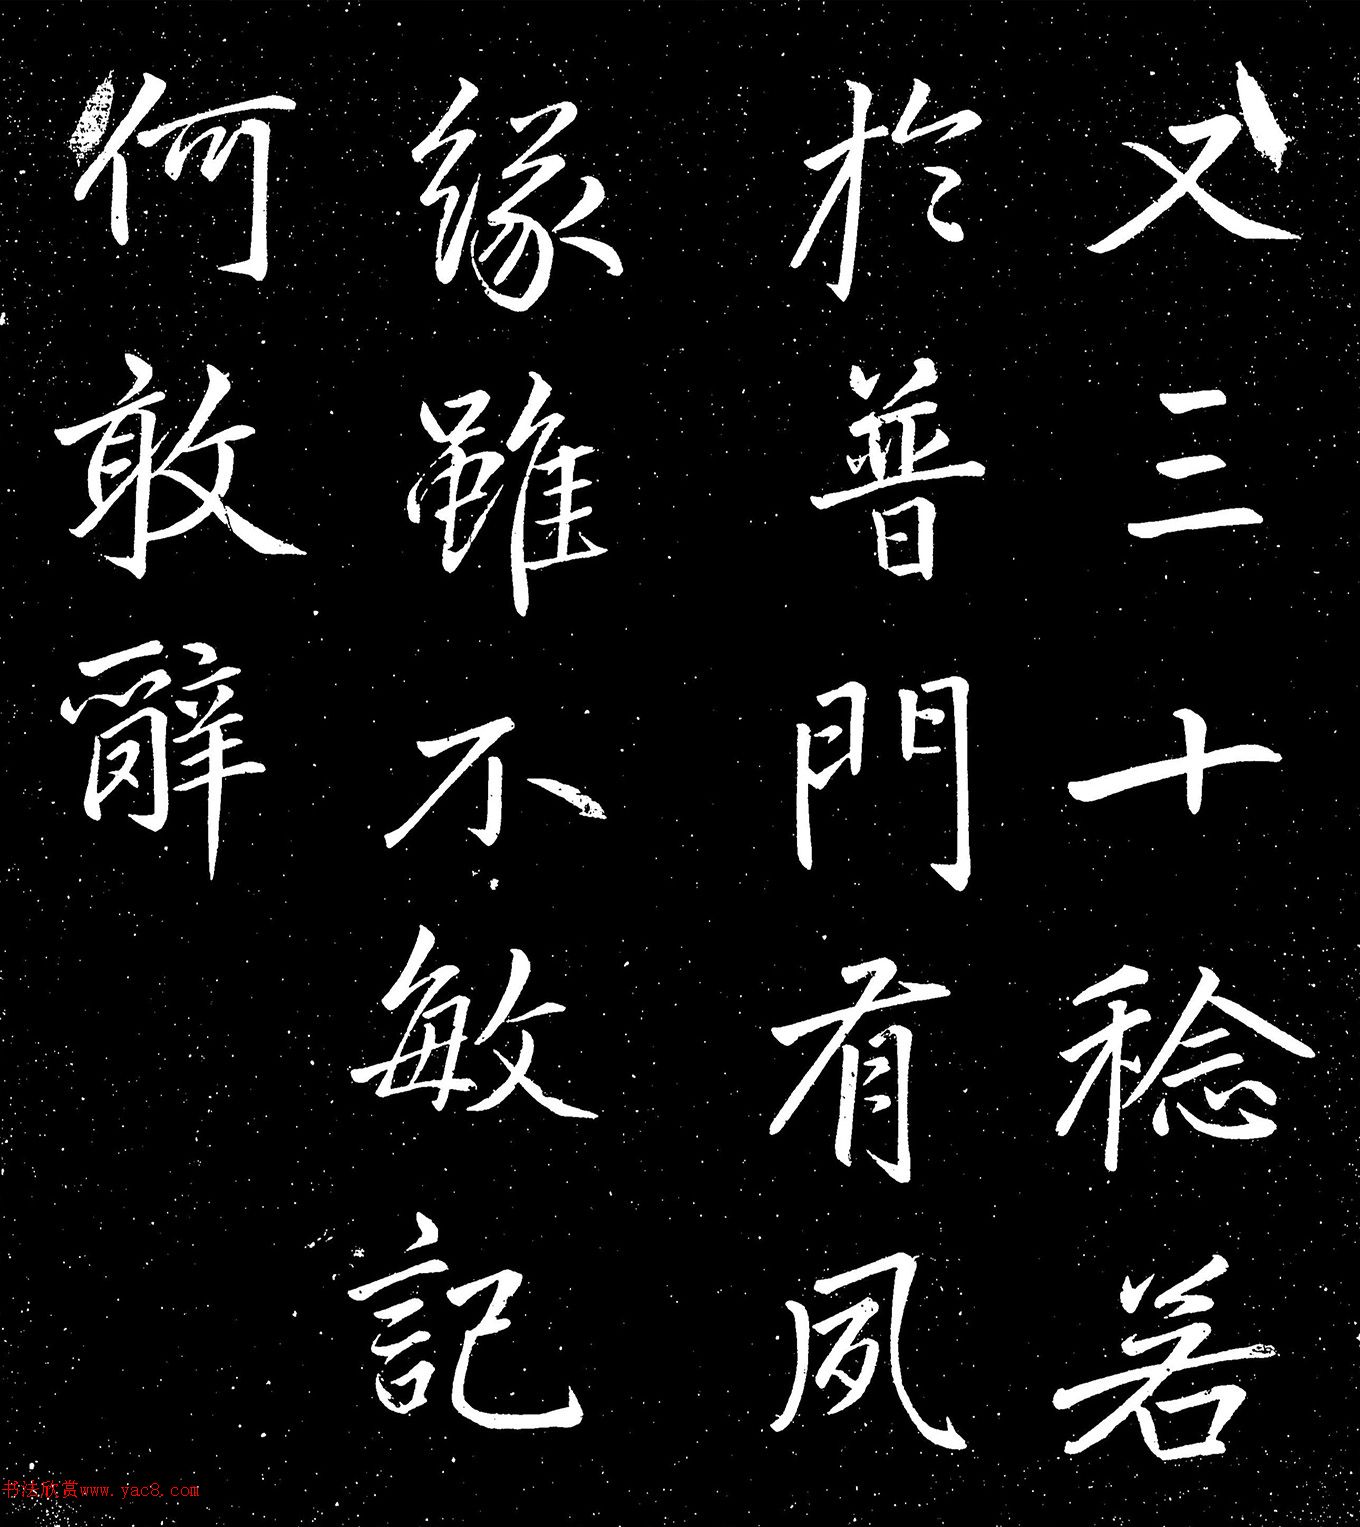 又三十稔若
於普門有夙
緣雖不敏記
何敢辭
书法欣赏www.yac8.com